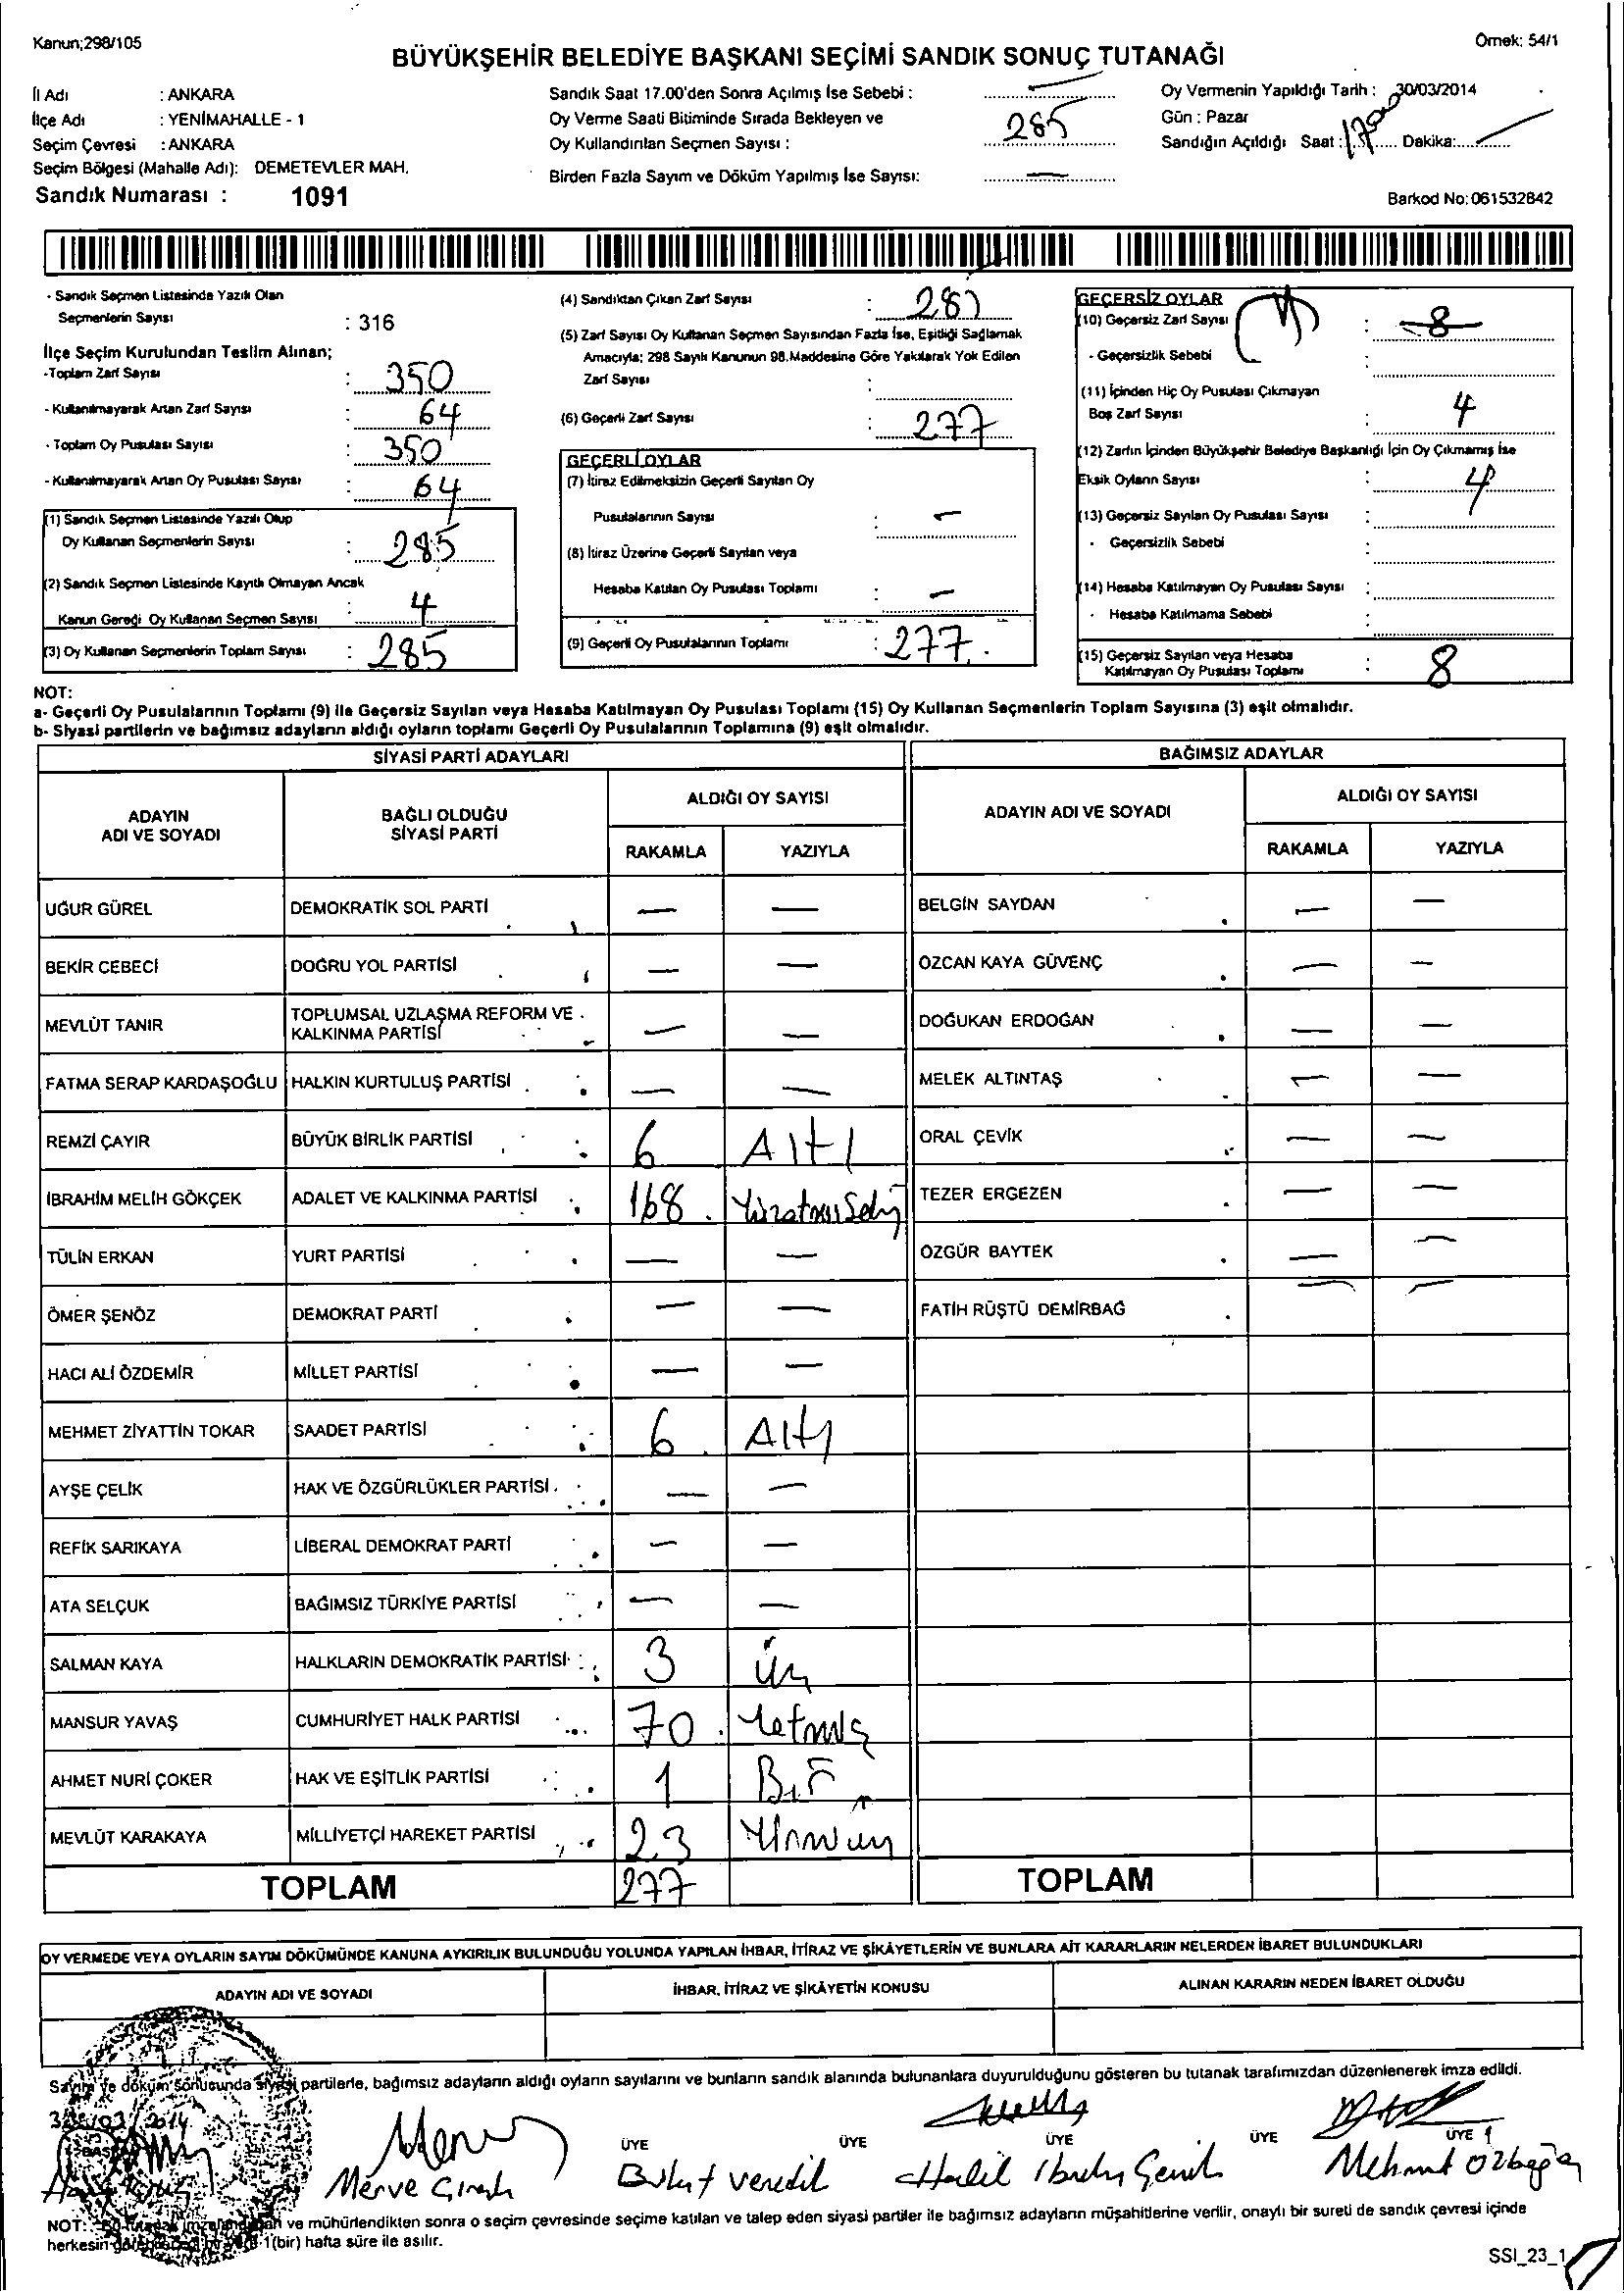 Kanun;298/105
Örnek: 54/1
BÜYÜKŞEHİR BELEDİYE BAŞKANI SEÇİMİ SANDIK SONUÇ TUTANAĞI
İl Adı : ANKARA
İlçe Adı : YENİMAHALLE - 1
Seçim Çevresi : ANKARA
Seçim Bölgesi (Mahalle Adı): DEMETEVLER MAH.
Sandık Numarası : 1091
Sandık Saat 17.00'den Sonra Açılmış İse Sebebi :
Oy Verme Saati Bitiminde Sırada Bekleyen ve
Oy Kullandırılan Seçmen Sayısı : 285
Birden Fazla Sayım ve Döküm Yapılmış İse Sayısı: —
Oy Vermenin Yapıldığı Tarih : 30/03/2014
Gün : Pazar
Sandığın Açıldığı Saat : 17 00 Dakika:
Barkod No:061532842
- Sandık Seçmen Listesinde Yazılı Olan
Seçmenlerin Sayısı : 316
İlçe Seçim Kurulundan Teslim Alınan;
-Toplam Zarf Sayısı : 350
- Kullanılmayarak Artan Zarf Sayısı : 64
- Toplam Oy Pusulası Sayısı : 350
- Kullanılmayarak Artan Oy Pusulası Sayısı : 64
(1) Sandık Seçmen Listesinde Yazılı Olup
Oy Kullanan Seçmenlerin Sayısı : 285
(2) Sandık Seçmen Listesinde Kayıtlı Olmayan Ancak
Kanun Gereği Oy Kullanan Seçmen Sayısı : 4
(3) Oy Kullanan Seçmenlerin Toplam Sayısı : 285
(4) Sandıktan Çıkan Zarf Sayısı : 285
(5) Zarf Sayısı Oy Kullanan Seçmen Sayısından Fazla İse, Eşitliği Sağlamak
Amacıyla; 298 Sayılı Kanunun 98.Maddesine Göre Yakılarak Yok Edilen
Zarf Sayısı :
(6) Geçerli Zarf Sayısı : 277
GEÇERLİ OYLAR
(7) İtiraz Edilmeksizin Geçerli Sayılan Oy
Pusulalarının Sayısı : —
(8) İtiraz Üzerine Geçerli Sayılan veya
Hesaba Katılan Oy Pusulası Toplamı : —
(9) Geçerli Oy Pusulalarının Toplamı : 277
GEÇERSİZ OYLAR
(10) Geçersiz Zarf Sayısı : 8
- Geçersizlik Sebebi :
(11) İçinden Hiç Oy Pusulası Çıkmayan
Boş Zarf Sayısı : 4
(12) Zarfın İçinden Büyükşehir Belediye Başkanlığı İçin Oy Çıkmamış İse
Eksik Oyların Sayısı : 4
(13) Geçersiz Sayılan Oy Pusulası Sayısı :
- Geçersizlik Sebebi :
(14) Hesaba Katılmayan Oy Pusulası Sayısı :
- Hesaba Katılmama Sebebi :
(15) Geçersiz Sayılan veya Hesaba
Katılmayan Oy Pusulası Toplamı : 8
NOT:
a- Geçerli Oy Pusulalarının Toplamı (9) ile Geçersiz Sayılan veya Hesaba Katılmayan Oy Pusulası Toplamı (15) Oy Kullanan Seçmenlerin Toplam Sayısına (3) eşit olmalıdır.
b- Siyasi partilerin ve bağımsız adayların aldığı oyların toplamı Geçerli Oy Pusulalarının Toplamına (9) eşit olmalıdır.
SİYASİ PARTİ ADAYLARI
ADAYIN ADI VE SOYADI BAĞLI OLDUĞU SİYASİ PARTİ ALDIĞI OY SAYISI RAKAMLA YAZIYLA
UĞUR GÜREL DEMOKRATİK SOL PARTİ — —
BEKİR CEBECİ DOĞRU YOL PARTİSİ — —
MEVLÜT TANIR TOPLUMSAL UZLAŞMA REFORM VE KALKINMA PARTİSİ — —
FATMA SERAP KARDAŞOĞLU HALKIN KURTULUŞ PARTİSİ — —
REMZİ ÇAYIR BÜYÜK BİRLİK PARTİSİ 6 Altı
İBRAHİM MELİH GÖKÇEK ADALET VE KALKINMA PARTİSİ 168
TÜLİN ERKAN YURT PARTİSİ — —
ÖMER ŞENÖZ DEMOKRAT PARTİ — —
HACI ALİ ÖZDEMİR MİLLET PARTİSİ — —
MEHMET ZİYATTİN TOKAR SAADET PARTİSİ 6 Altı
AYŞE ÇELİK HAK VE ÖZGÜRLÜKLER PARTİSİ — —
REFİK SARIKAYA LİBERAL DEMOKRAT PARTİ — —
ATA SELÇUK BAĞIMSIZ TÜRKİYE PARTİSİ — —
SALMAN KAYA HALKLARIN DEMOKRATİK PARTİSİ 3 Üç
MANSUR YAVAŞ CUMHURİYET HALK PARTİSİ 70 Yetmiş
AHMET NURİ ÇOKER HAK VE EŞİTLİK PARTİSİ 1 Bir
MEVLÜT KARAKAYA MİLLİYETÇİ HAREKET PARTİSİ 23
TOPLAM 277
BAĞIMSIZ ADAYLAR
ADAYIN ADI VE SOYADI ALDIĞI OY SAYISI RAKAMLA YAZIYLA
BELGİN SAYDAN — —
ÖZCAN KAYA GÜVENÇ — —
DOĞUKAN ERDOĞAN — —
MELEK ALTINTAŞ — —
ORAL ÇEVİK — —
TEZER ERGEZEN — —
ÖZGÜR BAYTEK — —
FATİH RÜŞTÜ DEMİRBAĞ — —
TOPLAM
OY VERMEDE VEYA OYLARIN SAYIM DÖKÜMÜNDE KANUNA AYKIRILIK BULUNDUĞU YOLUNDA YAPILAN İHBAR, İTİRAZ VE ŞİKÂYETLERİN VE BUNLARA AİT KARARLARIN NELERDEN İBARET BULUNDUKLARI
ADAYIN ADI VE SOYADI İHBAR, İTİRAZ VE ŞİKÂYETİN KONUSU ALINAN KARARIN NEDEN İBARET OLDUĞU
Sayım ve döküm sonucunda siyasi partilerle, bağımsız adayların aldığı oyların sayılarını ve bunların sandık alanında bulunanlara duyurulduğunu gösteren bu tutanak tarafımızdan düzenlenerek imza edildi.
BAŞKAN ÜYE ÜYE ÜYE ÜYE ÜYE
Merve Bulut Halil Mehmet
NOT: Bu tutanak ve mühürlendikten sonra o seçim çevresinde seçime katılan ve talep eden siyasi partiler ile bağımsız adayların müşahitlerine verilir, onaylı bir sureti de sandık çevresi içinde
herkesin 1(bir) hafta süre ile asılır.
SSI_23_1